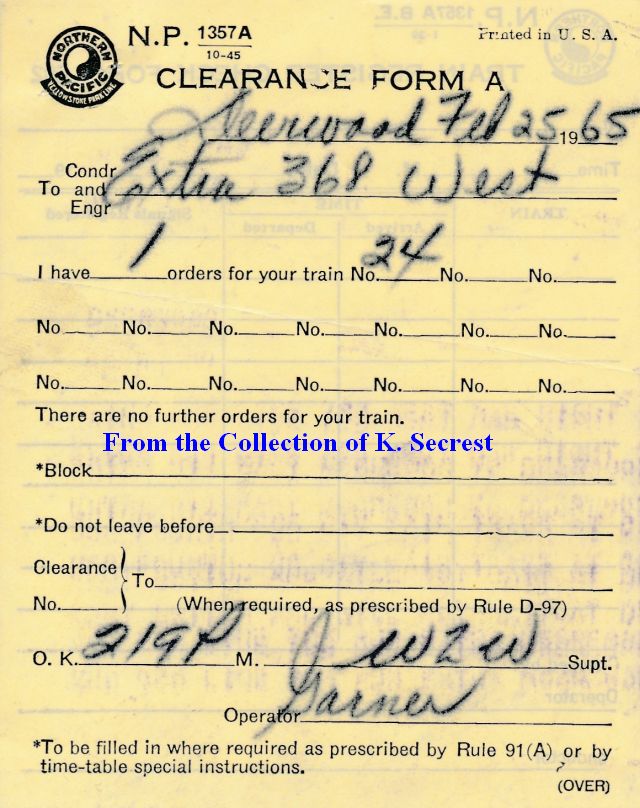 NORTHERN PACIFIC
YELLOWSTONE PARK LINE
N.P. 1357A
10-45
Printed in U. S. A.
CLEARANCE FORM A
Deerwood Feb 25 1965
To Condr and Engr Extra 368 West
I have 1 orders for your train No. 24 No. No.
No No. No. No. No. No. No.
No. No. No. No. No. No. No.
There are no further orders for your train.
From the Collection of K. Secrest
*Block
*Do not leave before
Clearance No. To
(When required, as prescribed by Rule D-97)
O. K. 219P M. WLW Supt.
Operator Garner
*To be filled in where required as prescribed by Rule 91(A) or by
time-table special instructions.
(OVER)